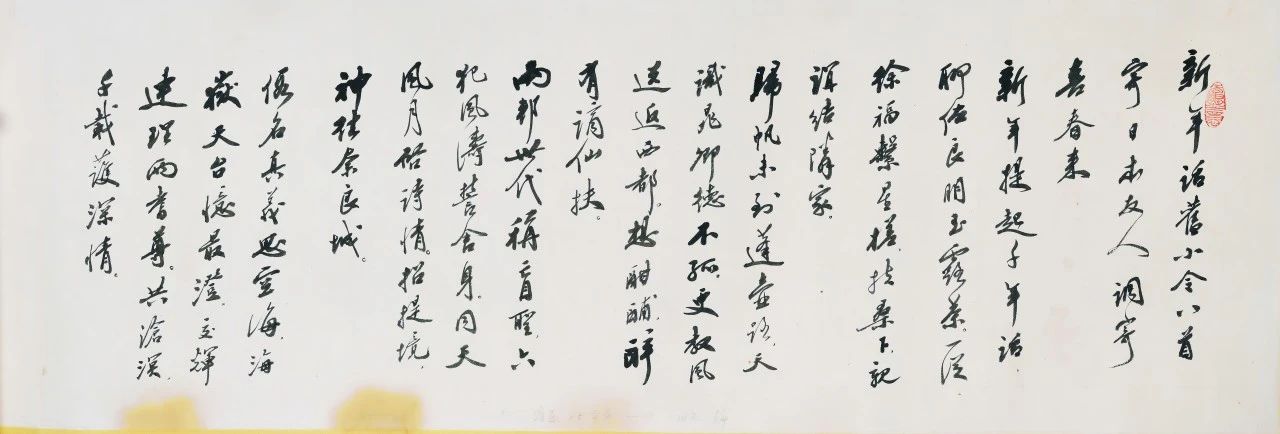 新年話舊小令八首
寄日本友人 調寄
喜春来
新年提起千年話，
聊佐良朋玉露茶。一從
徐福繫星槎，扶桑下，親
誼結隣家。
歸帆未到蓬壺路，天
識晁卿德不孤。更教風
送返西都。想酣酺，醉
有謫仙扶。
兩邦世代稱盲聖，六
犯風濤誓舍身。同天
風月啓詩情。招提境，
神往奈良城。
名真義思空海，海
嶽天台憶最澄，交輝
連理兩耆尊。共滄溟，
千載護深情。